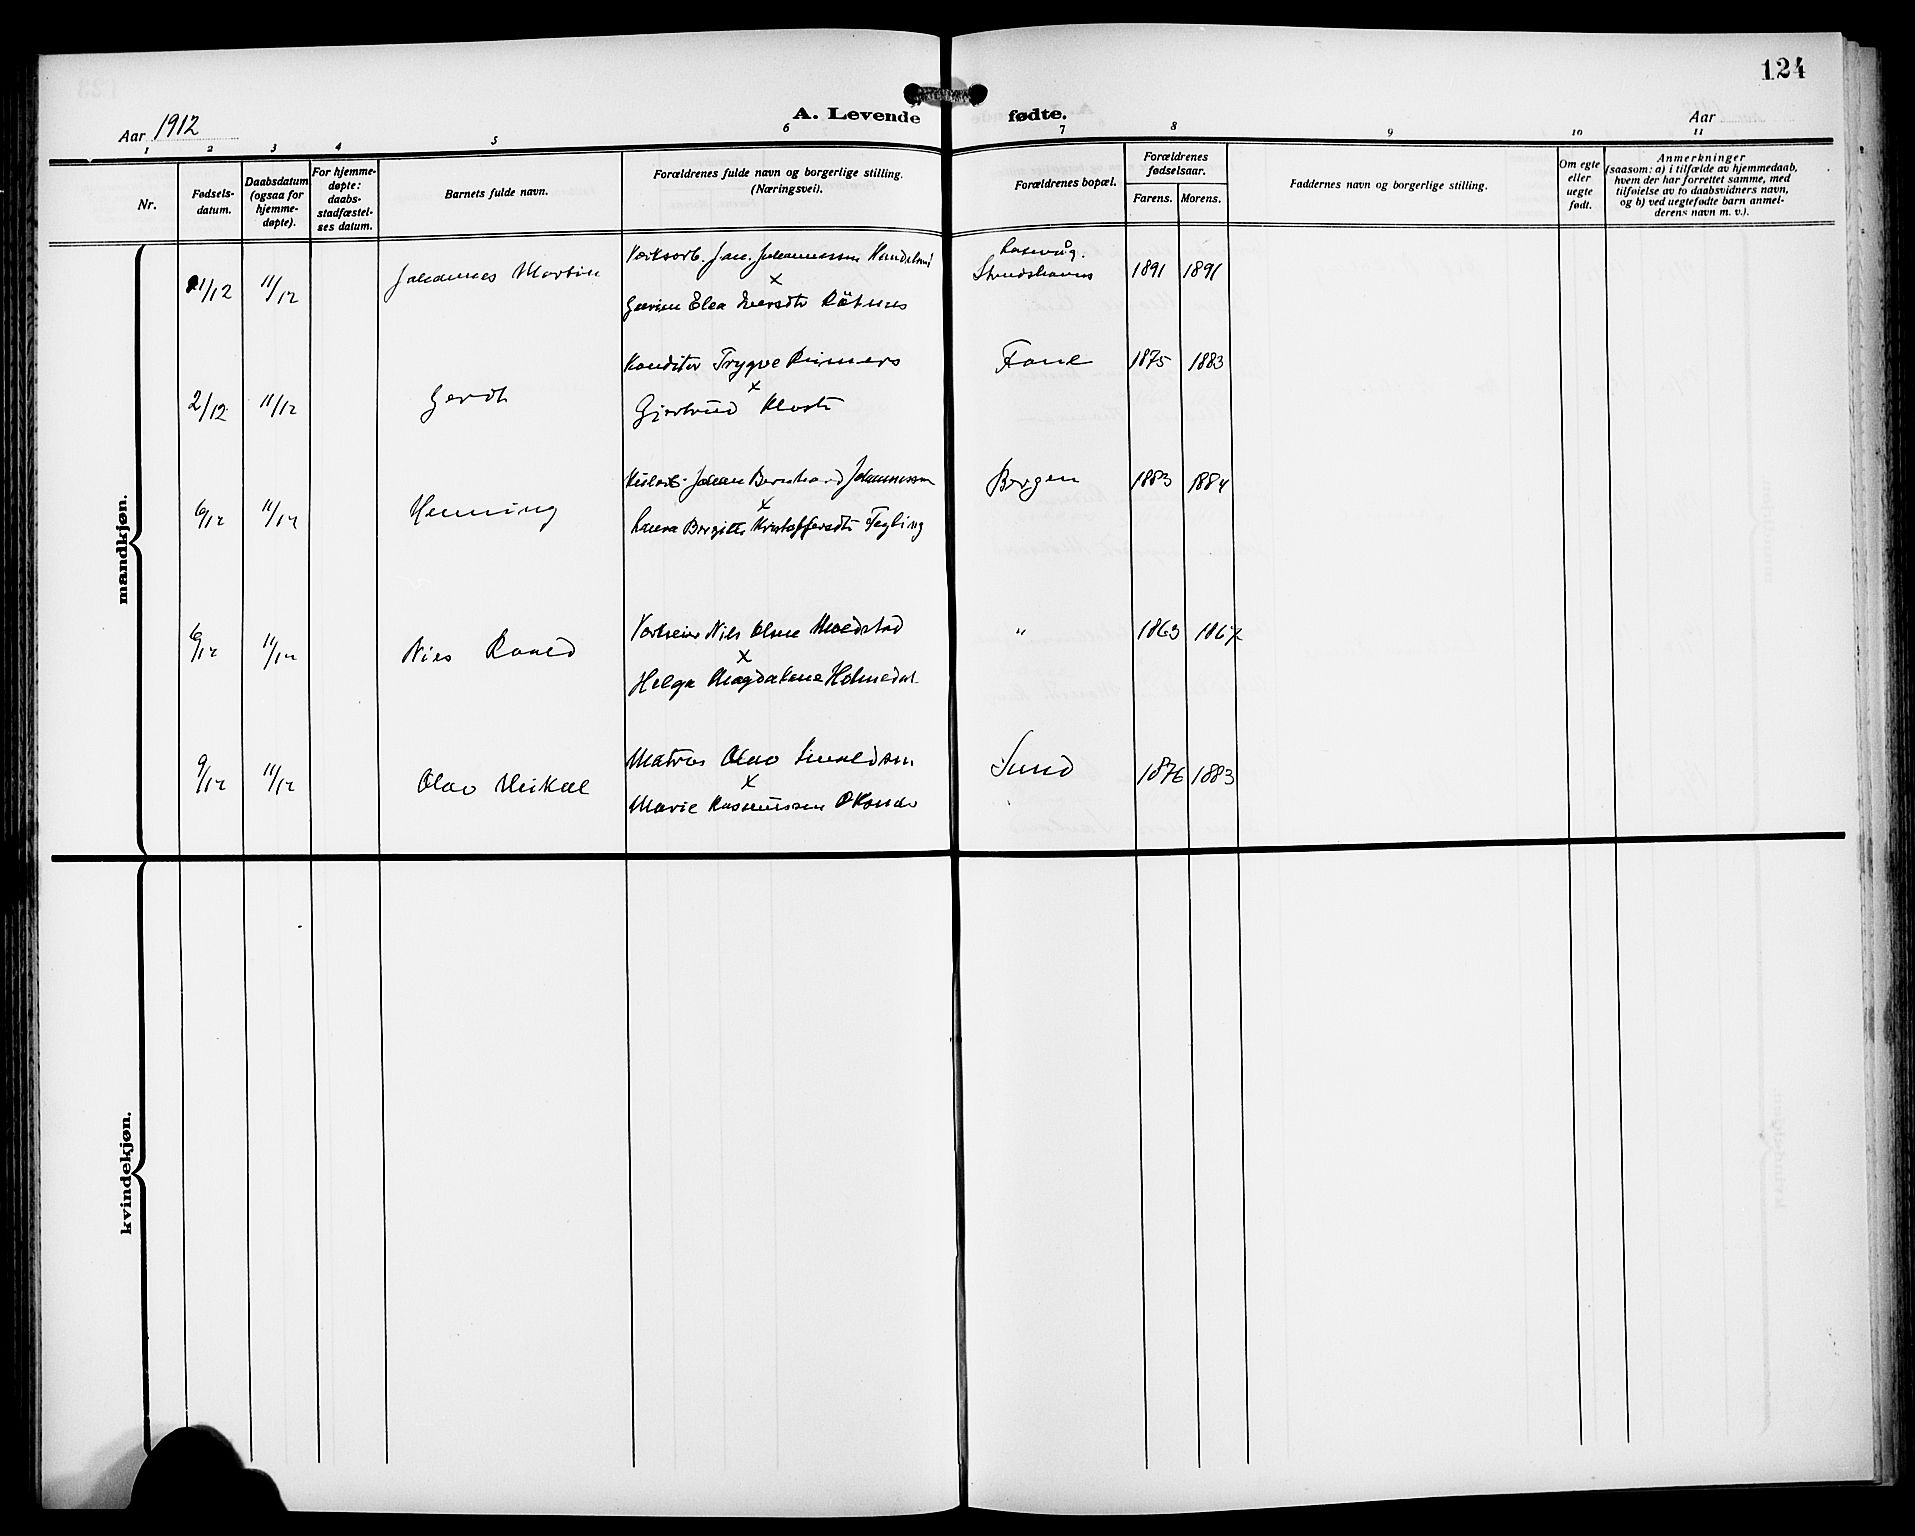 124
Aar 1912
A. Levende fødte.
Aar
1 2 3 4 5 6 7 8 9 10 11
Nr.
Fødsels-
datum.
Daabsdatum
(ogsaa for
hjemme-
døpte).
For hjemme-
døpte:
daabs-
stadfæstel-
ses datum.
Barnets fulde navn.
Forældrenes fulde navn og borgerlige stilling.
(Næringsvei).
Forældrenes bopæl.
Forældrenes
fødselsaar.
Farens. Morens.
Faddernes navn og borgerlige stilling.
Om egte
eller
uegte
født.
Anmerkninger
(saasom: a) i tilfælde av hjemmedaab,
hvem der har forrettet samme, med
tilføielse av to daabsvidners navn,
og b) ved uegtefødte barn anmel-
derens navn m. v.).
mandkjøn.
21/12 11/12 Johannes Martin
Johannessen
x
1891 1891
Konditor Trygve Reimers
2/12 11/12 Gerdt
x
Gjertrud
Fane 1875 1883
Johan Bernhard Johannessen
6/12 11/12 Henning
x
Laura Birgitte Kristoffersdtr Tegling
Bergen 1883 1884
Nils Olsen
6/12 11/12 Nils
x
Helga Magdalene Holmedal
" 1863 1867
Matros Olav
9/12 11/12 Olav Mikal
x
Marie Rasmussen
Sund 1876 1883
kvindekjøn.